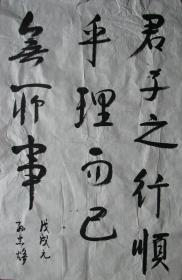 君子之行順
乎理而已
無所事
戊戌元